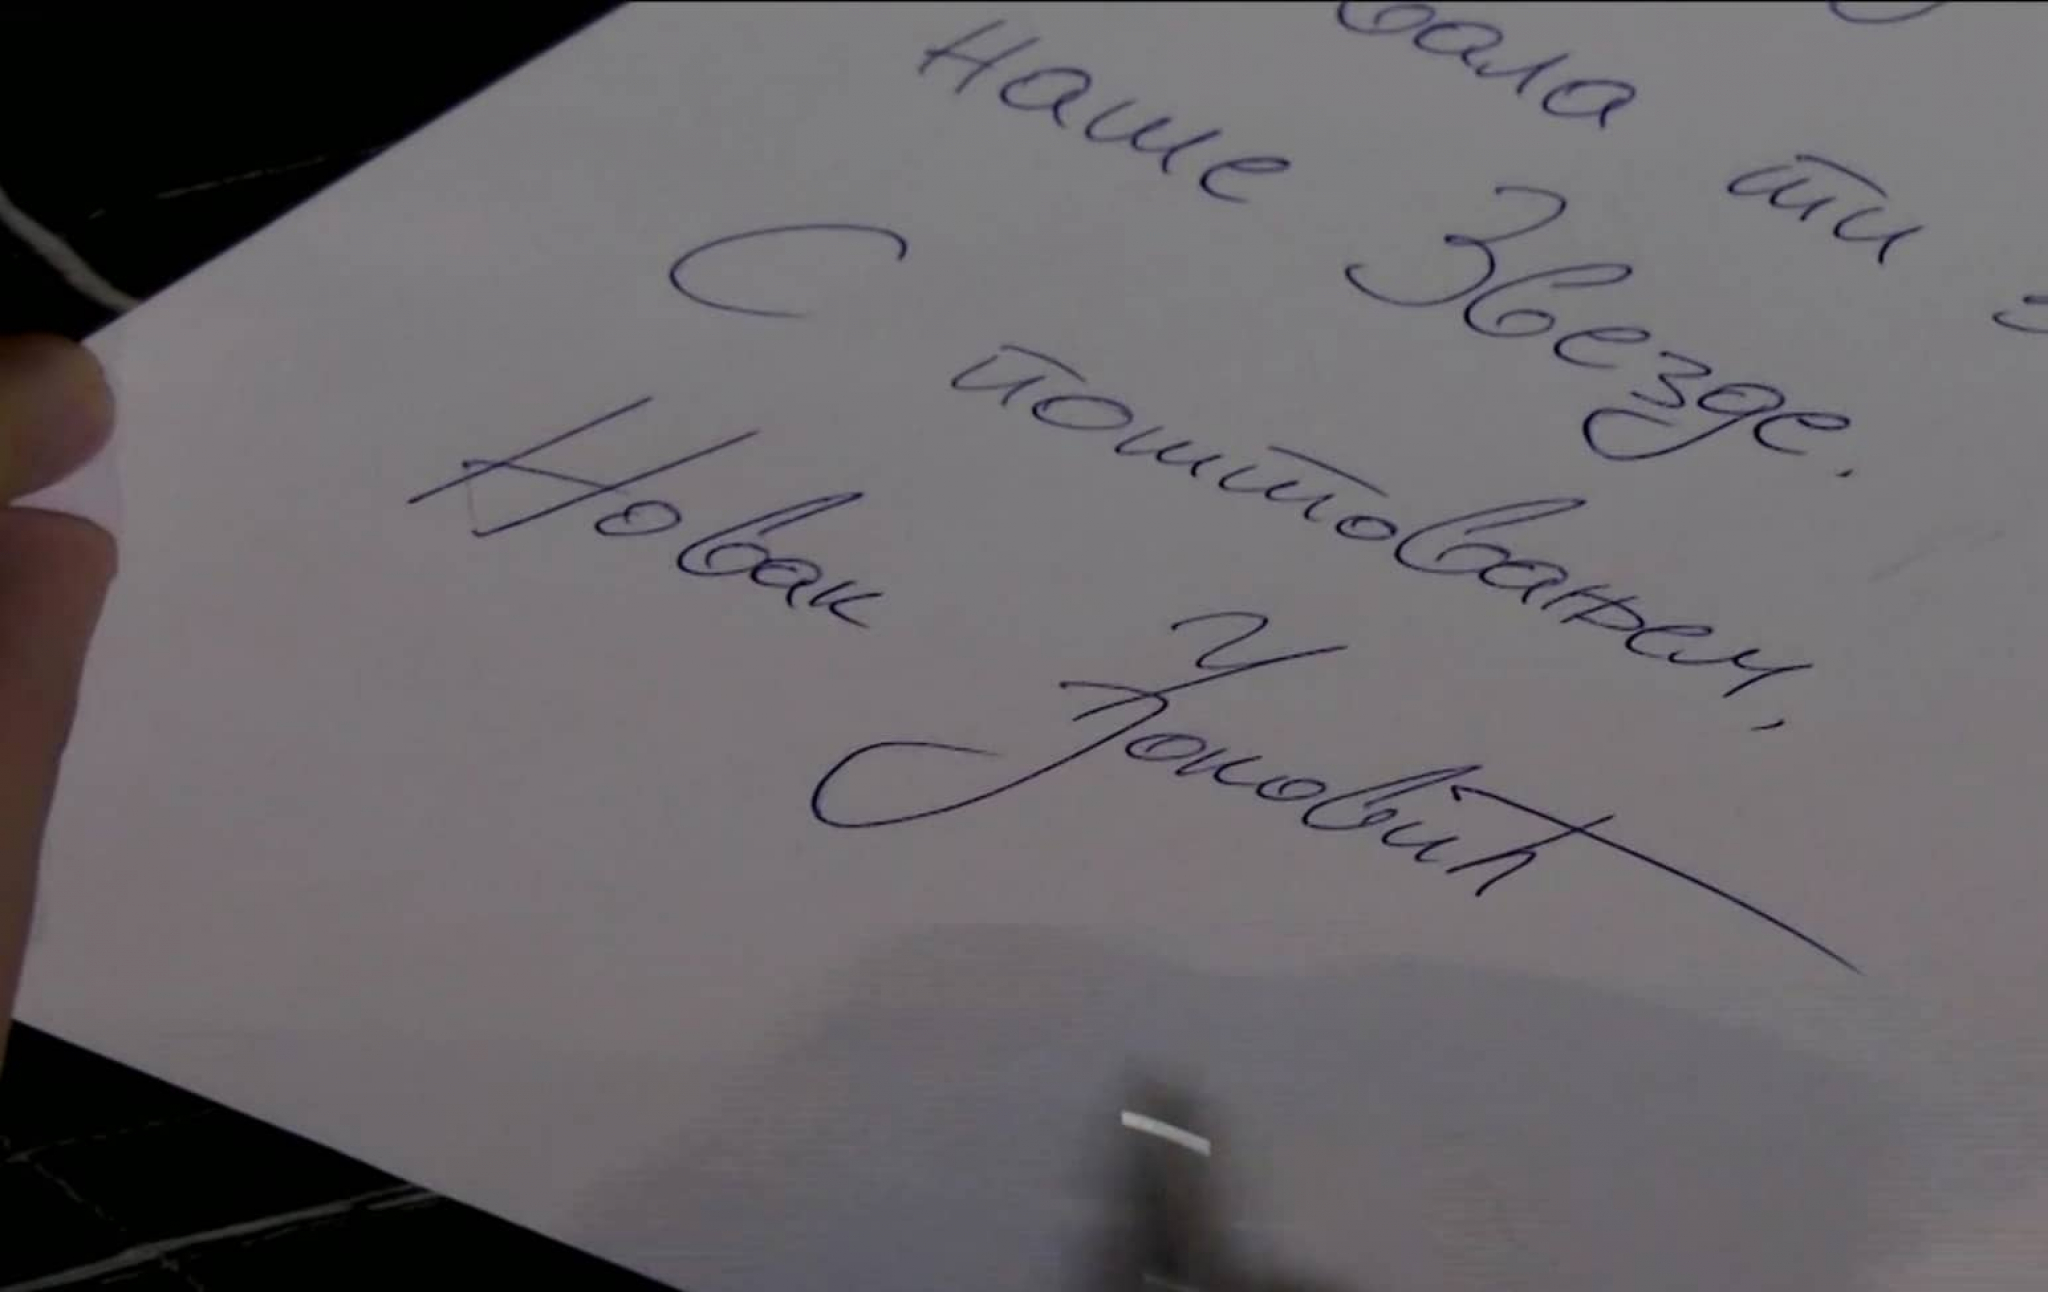 вала ти
наше Звезде.
С поштовањем,
Новак Ђоковић